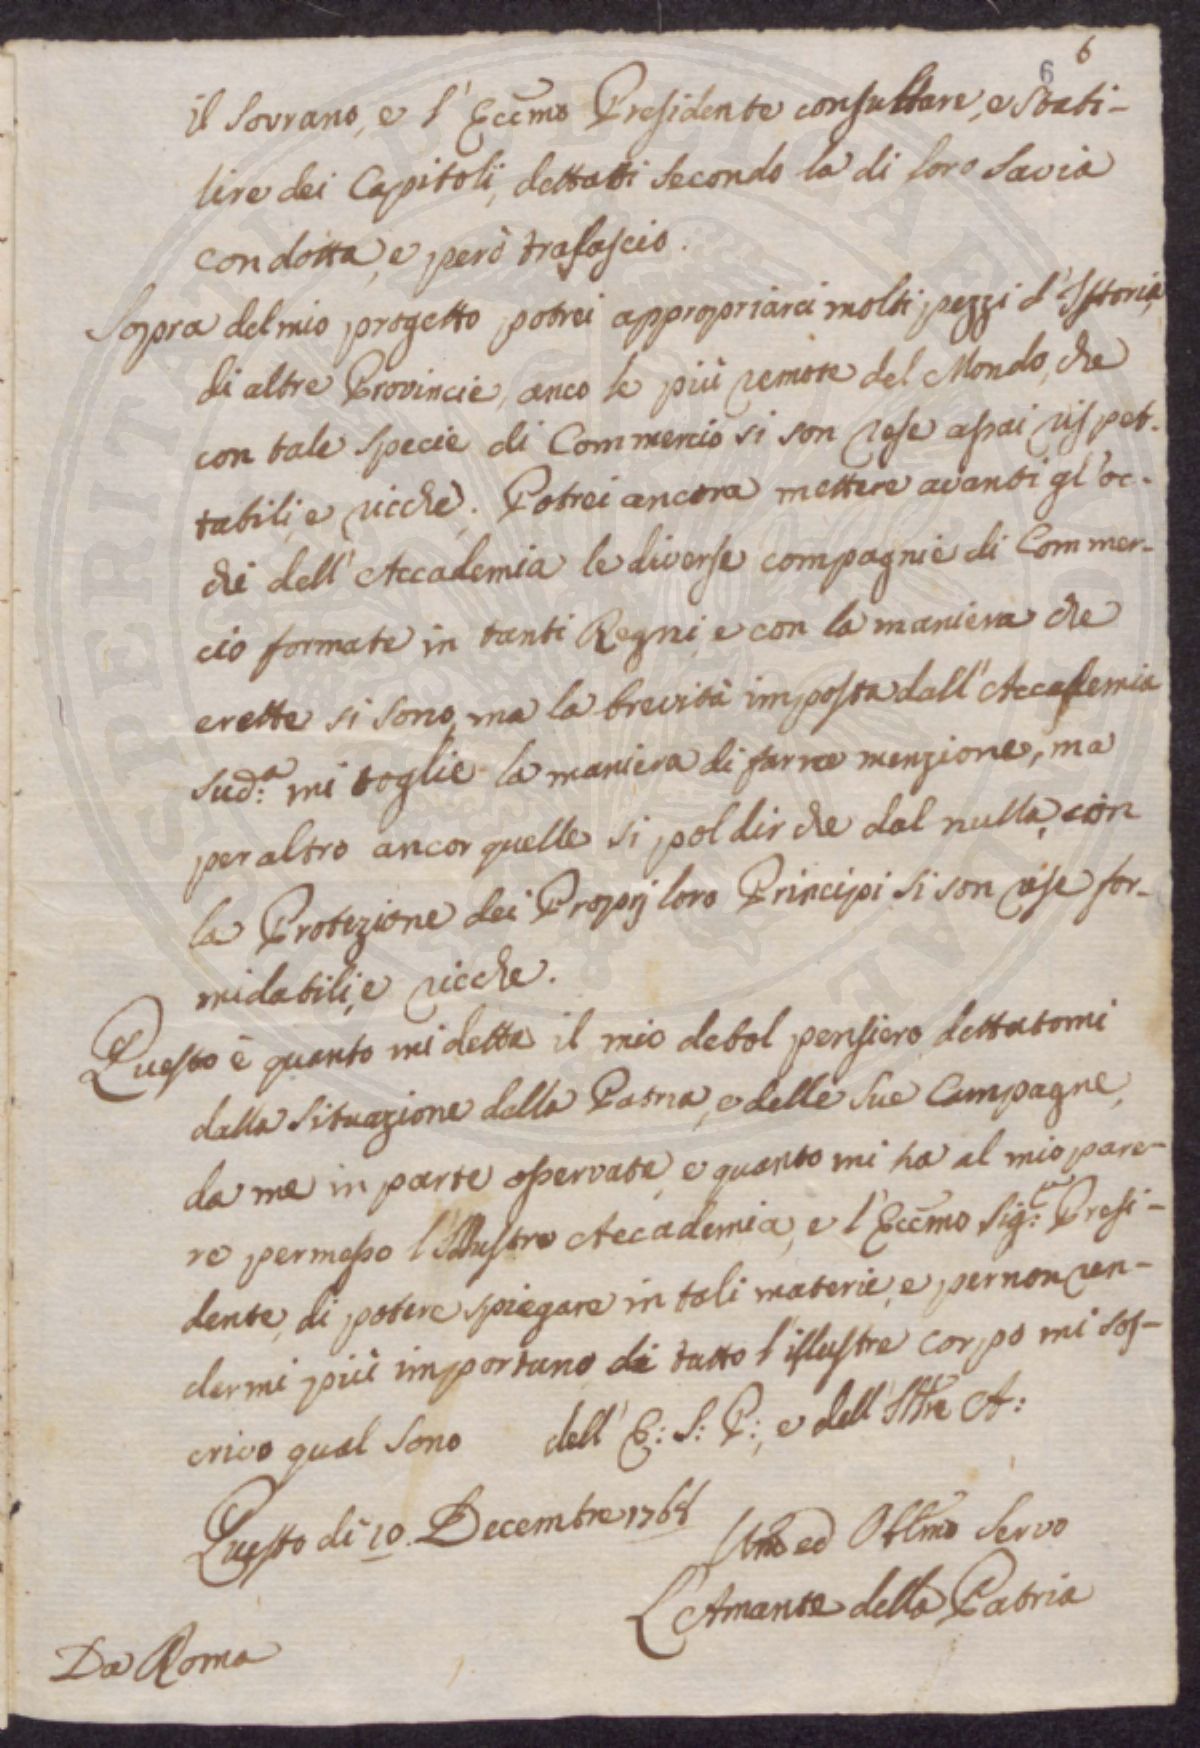 6 6
il Sovrano, e l'Eccmo Presidente consultare, e Stati-
lire dei Capitoli, dettatti secondo la di loro Savia
condotta, e però tralascio.
Sopra del mio progetto potrei appropriarci molti pezzi d'Istoria,
di altre Provincie, anco le più remote del Mondo, che
con tale specie di Commercio si son rese assai rispet-
tabili, e ricche. Potrei ancora mettere avanti gl'oc-
chi dell'Accademia le diverse compagnie di Commer-
cio formate in tanti Regni, e con la maniera che
erette si sono, ma la brevità imposta dall'Accademia
sud:a mi toglie la maniera di farne menzione, ma
per altro ancor quelle si pol dir che dal nulla, con
la Protezione dei Proprj loro Principi si son rese for-
midabili, e ricche.
Questo è quanto mi detta il mio debol pensiero dettatomi
dalla situazione della Patria, e delle sue Campagne,
da me in parte osservate, e quanto mi ha al mio pare-
re permesso l'Illustre Accademia, e l'Eccmo Sig:re Presi-
dente, di potere spiegare in tali materie, e per non ren-
dermi più importuno di tutto l'illustre corpo mi sos-
crivo qual sono dell'E: S: P:, e dell'Illre A:
Questo dì 10. Decembre 1768
Umo ed Obblmo Servo
L'Amante della Patria
Da Roma